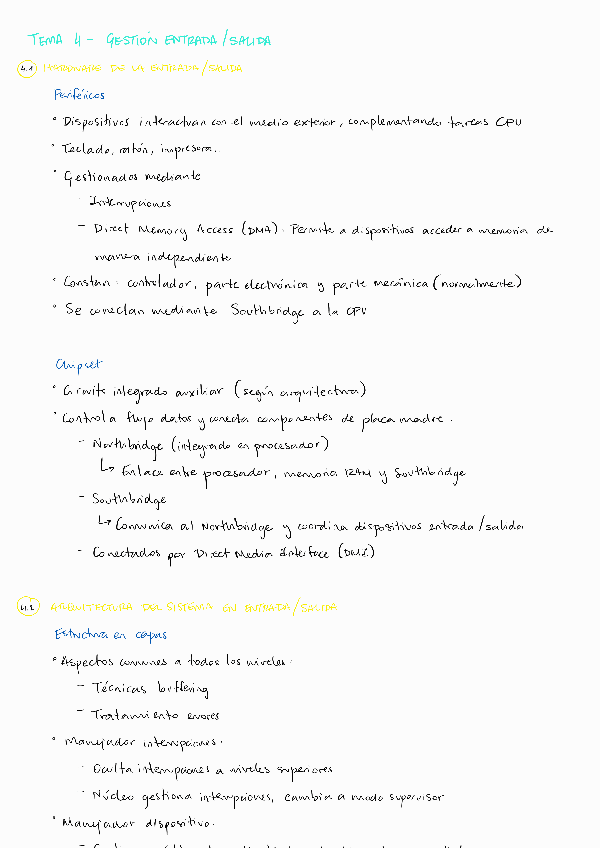 TEMA 4 - GESTIÓN ENTRADA/SALIDA
4.1 HARDWARE DE LA ENTRADA/SALIDA
Periféricos
° Dispositivos interactúan con el medio exterior, complementando tareas CPU
° Teclado, ratón, impresora...
° Gestionados mediante
- Interrupciones
- Direct Memory Access (DMA): Permite a dispositivos acceder a memoria de
manera independiente
° Constan: controlador, parte electrónica y parte mecánica (normalmente)
° Se conectan mediante Southbridge a la CPU
Chipset
° Circuito integrado auxiliar (según arquitectura)
° Controla flujo datos y conecta componentes de placa madre.
- Northbridge (integrado en procesador)
↳ Enlace entre procesador, memoria RAM y Southbridge
- Southbridge
↳ Comunica al Northbridge y coordina dispositivos entrada/salida
- Conectados por Direct Media Interface (DMI)
4.2 ARQUITECTURA DEL SISTEMA EN ENTRADA/SALIDA
Estructura en capas
° Aspectos comunes a todos los niveles:
- Técnicas buffering
- Tratamiento errores
° Manejador interrupciones:
- Oculta interrupciones a niveles superiores
- Núcleo gestiona interrupciones, cambia a modo supervisor
° Manejador dispositivo: